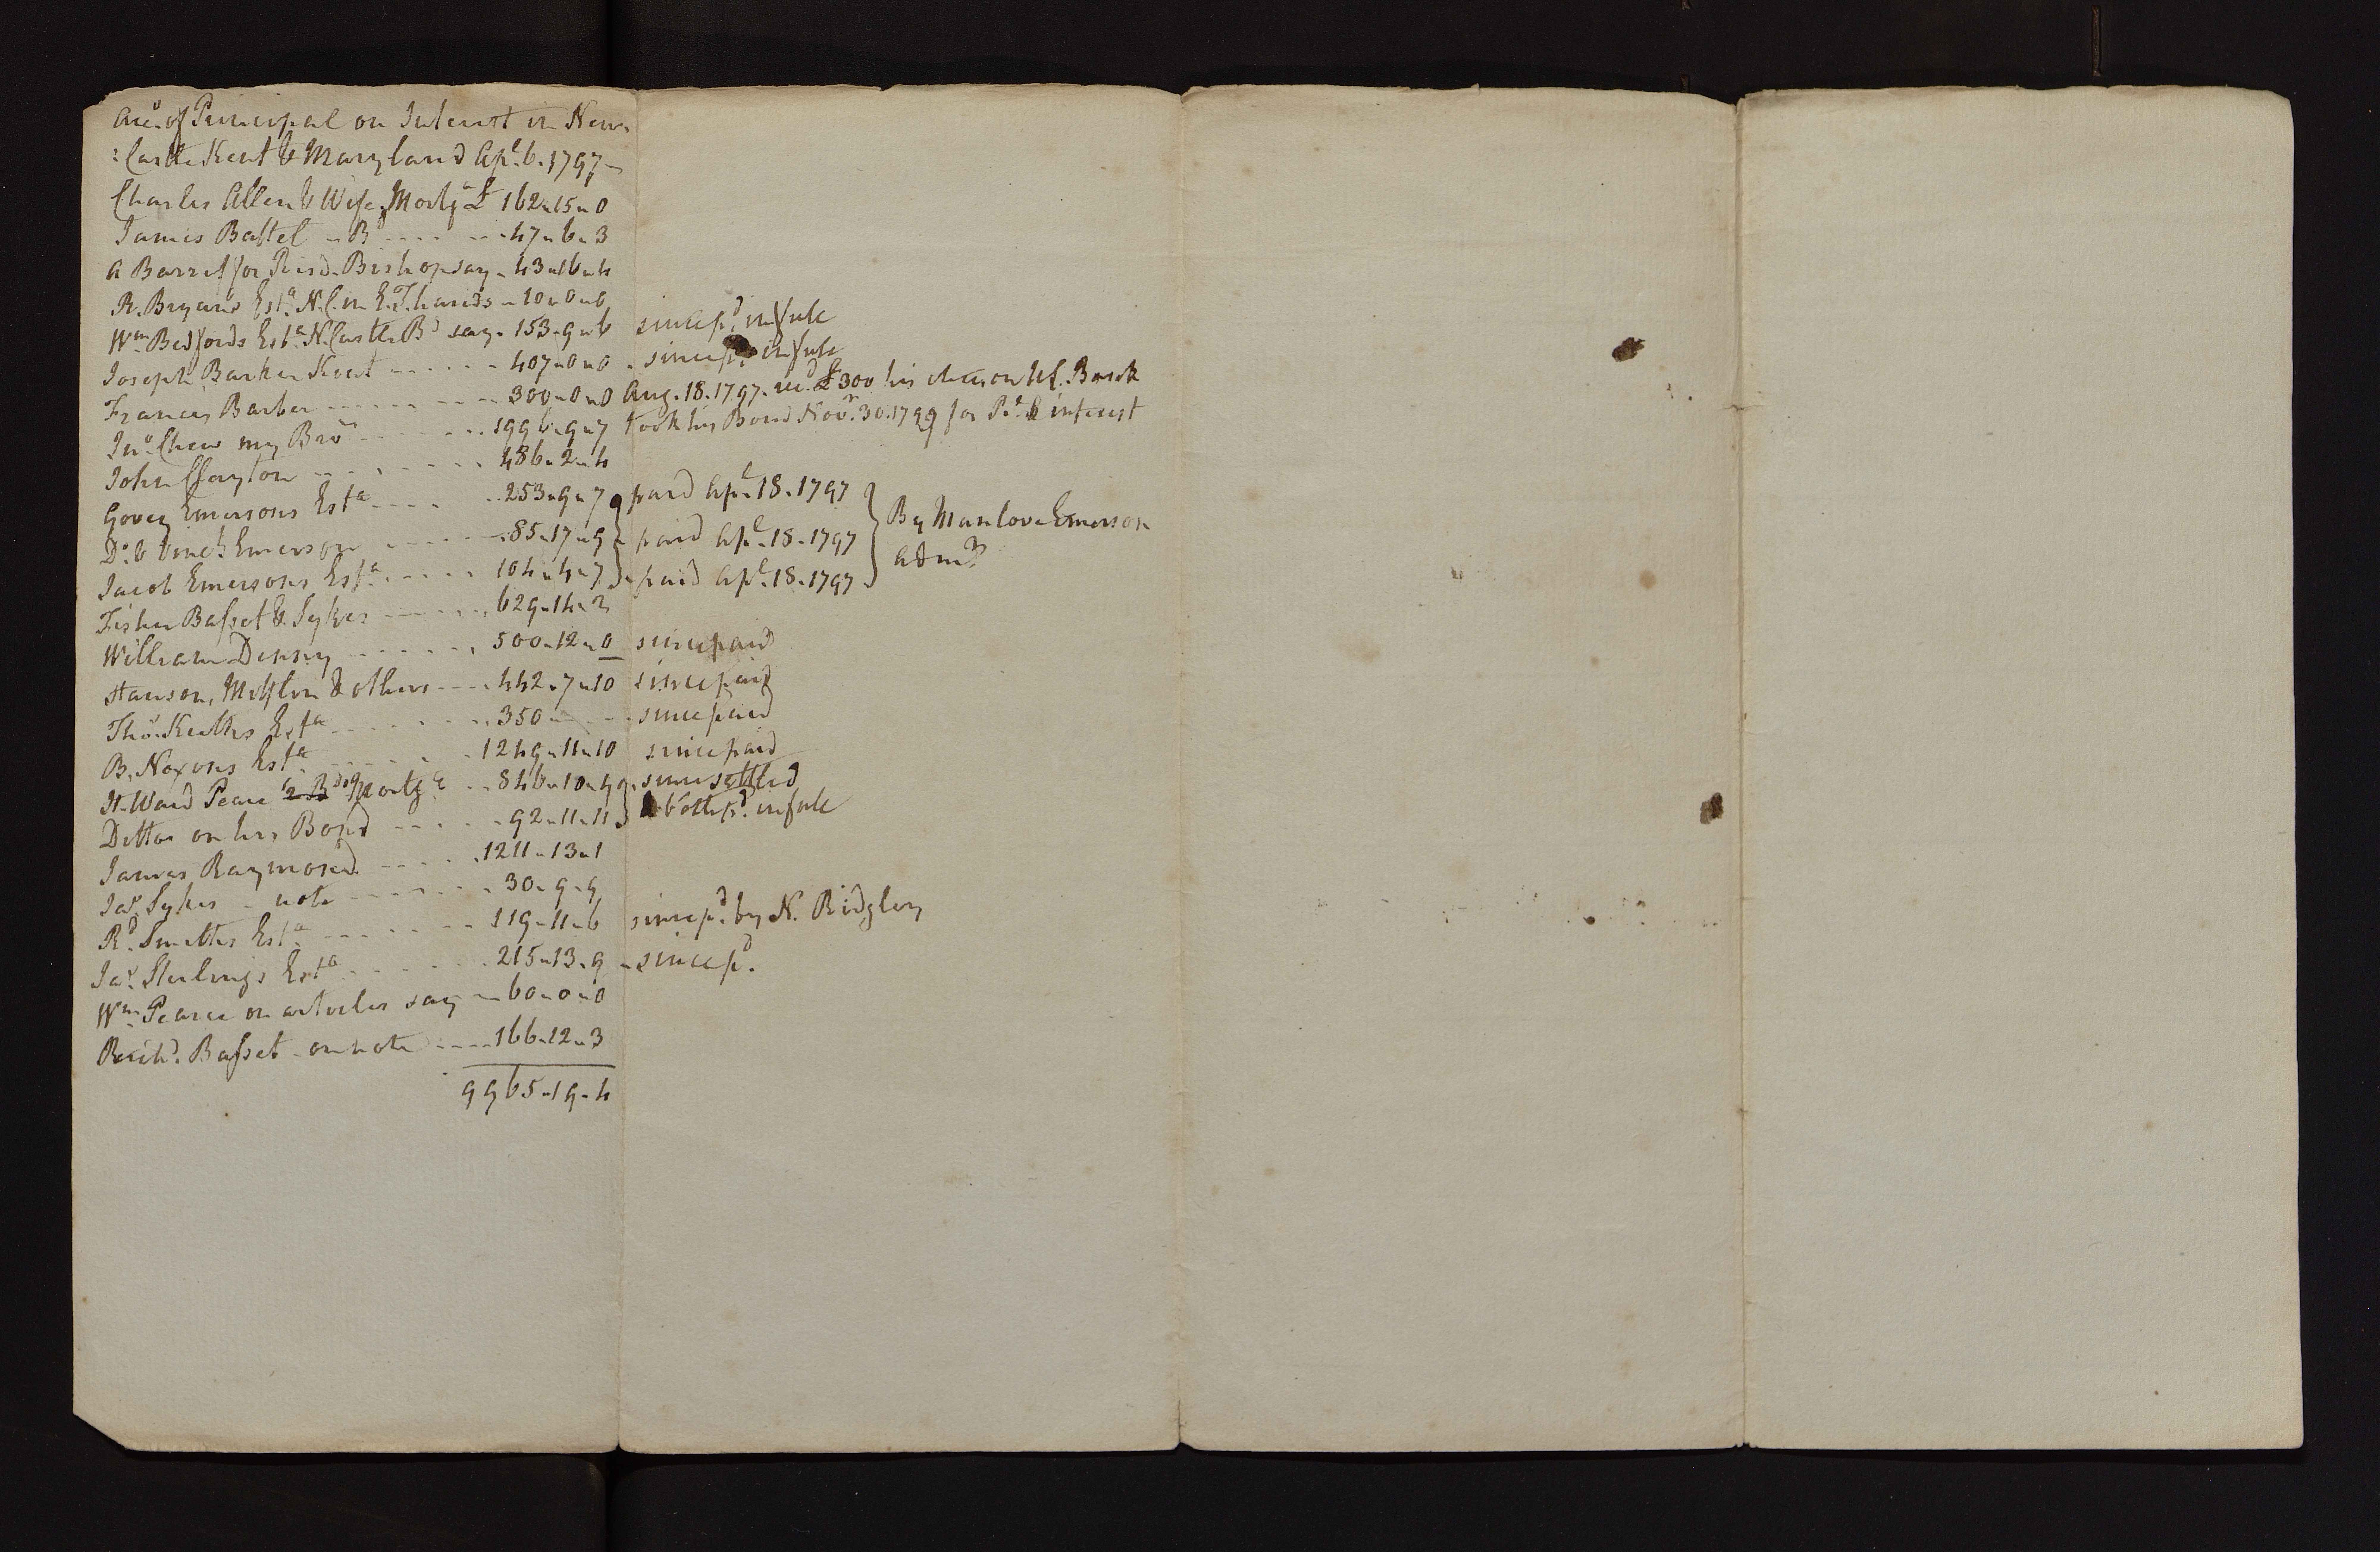 Acc.t of Principal on Interest in New-
: Castle Kent & Maryland Ap.l 6. 1797 -
Charles Allen & Wife, Mortg.a £ 162 " 15 " 0
James Battel - B.d - - - - 47 " 6 " 3
A Barret for Bishop say - 43 " 16 " 4
R. Bryan's Est.a N.C. in E.T. hands - 10 " 0 " 0
W.m Bedfords Est.a N. Castle B.d say - 153 - 9 " 6 since p.d in full
Joseph Barker Kent - - - - - 407 " 0 " 0 - since p.d in full
Francis Barber - - - - - - 300 " 0 " 0 Aug. 18. 1797. rec.d £300 his check on U.S. Bank
Jn.o Chew my Bro.r - - - - 1996 - 9 " 7 took his Bond Nov.r 30. 1799 for P.l & interest
John Clayton - - - - - - 486 - 2 " 4
Govey Emersons Est.a - - - - 253 " 9 " 7 paid Ap.l 18. 1797
D.o & Vinc.t Emerson - - - - 85 " 17 " 9 paid Ap.l 18. 1797 By Manlove Emerson
Jacob Emersons Est.a - - - - 104 " 4 " 7 paid Ap.l 18. 1797 Adm.r
Fisher Basset & Sykes - - - - 629 - 14 " 3
William Denny - - - - - 500 " 12 " 0 since paid
Hanson, Mifflin & others - - - 442 - 7 " 10 since paid
Tho.s Keiths Est.a - - - - - 350 " - - since paid
B. Noxons Est.a - - - - - 1249 " 11 " 10 since paid
H. Ward Pearce 2 B.ds Mortg.e - - 846 " 10 " 4 since settled
Ditto on his Bond - - - - 92 " 11 " 11 & both p.d in full
James Raymond - - - - 1211 - 13 " 1
Ja.s Sykes - note - - - - 30 - 9 - 9
R.d Smiths Est.a - - - - - 119 - 11 - 6 since p.d by N. Ridgley
Ja.s Sterlings Est.a - - - - - 215 " 13 - 9 - since p.d
W.m Pearce on articles say - 60 - 0 " 0
Rich.d Basset - on note - - - 166 " 12 " 3
9965 " 19 - 4